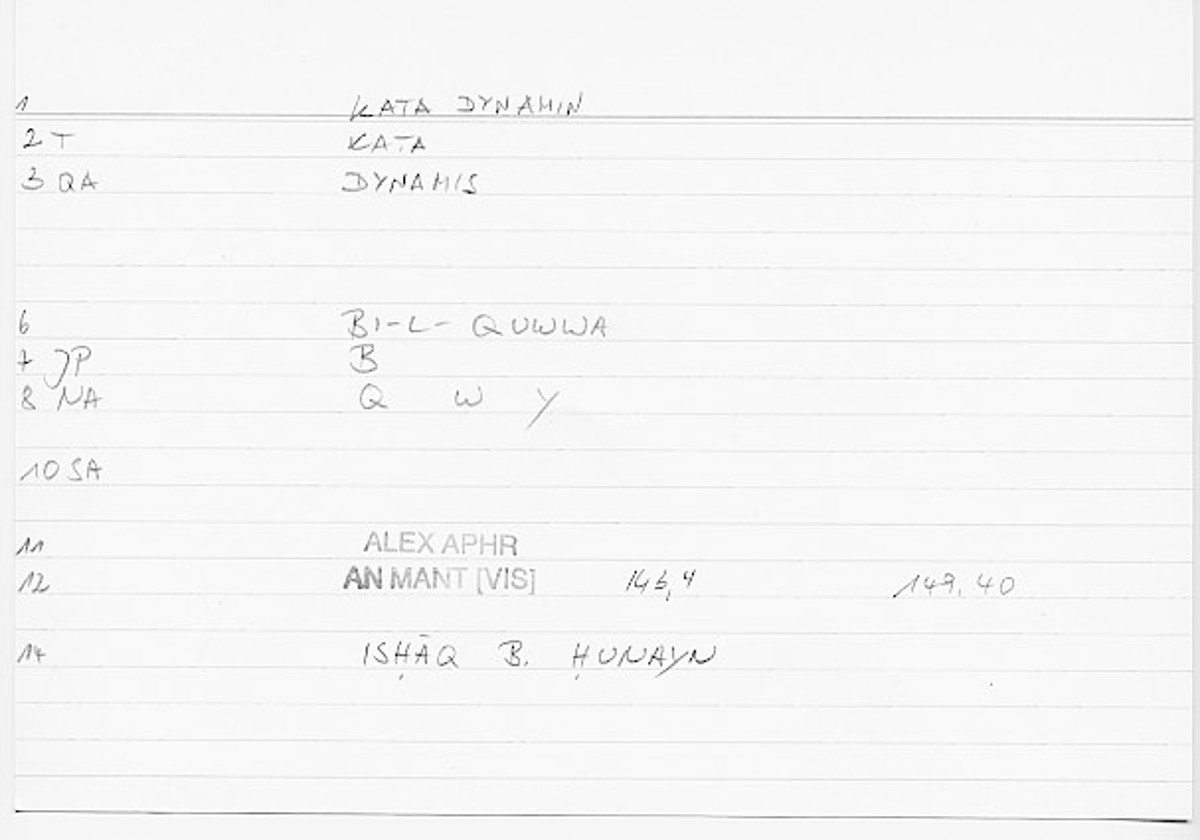 1 KATA DYNAMIN
2 T KATA
3 QA DYNAMIS
6 BI-L- QUWWA
7 JP B
8 NA Q W Y
10 SA
11 ALEX APHR
12 AN MANT [VIS] 146,4 149.40
14 ISḤĀQ B. ḤUNAYN